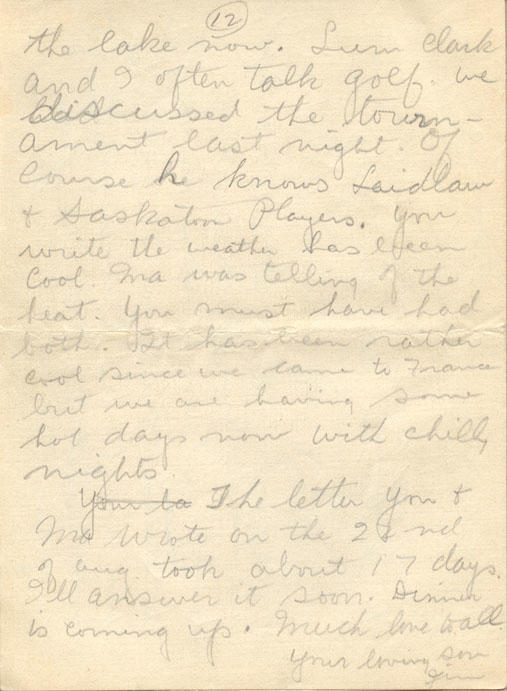 12
the lake now. Lum Clark
and I often talk golf. we
discussed the tourn-
ament last night. Of
Course he knows Laidlaw
& Saskatoon Players. You
write the weather has been
Cool. Ma was telling of the
heat. You must have had
both. It has been rather
cool since we came to France
but we are having some
hot days now with chilly
nights.
Your la The letter you &
Ma wrote on the 22nd
of aug took about 17 days.
I'll answer it soon. Dinner
is coming up. Much love to all.
Your loving son
Jim